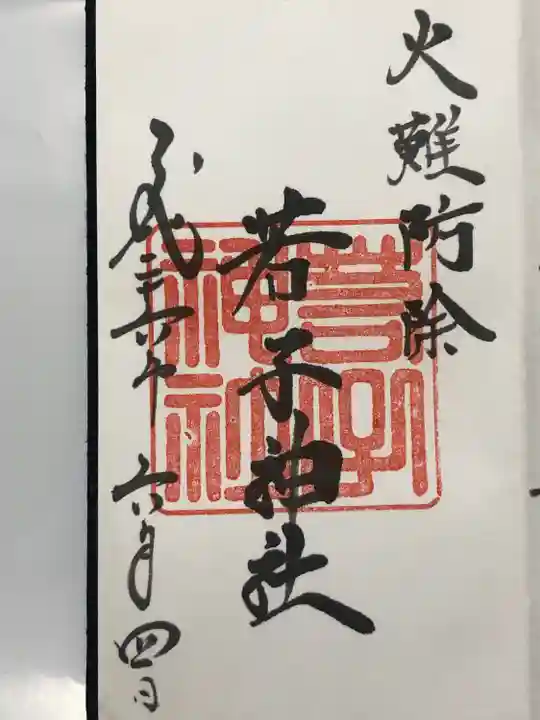 火難防除
若子神社
若子神社
平成三十六年六月四日